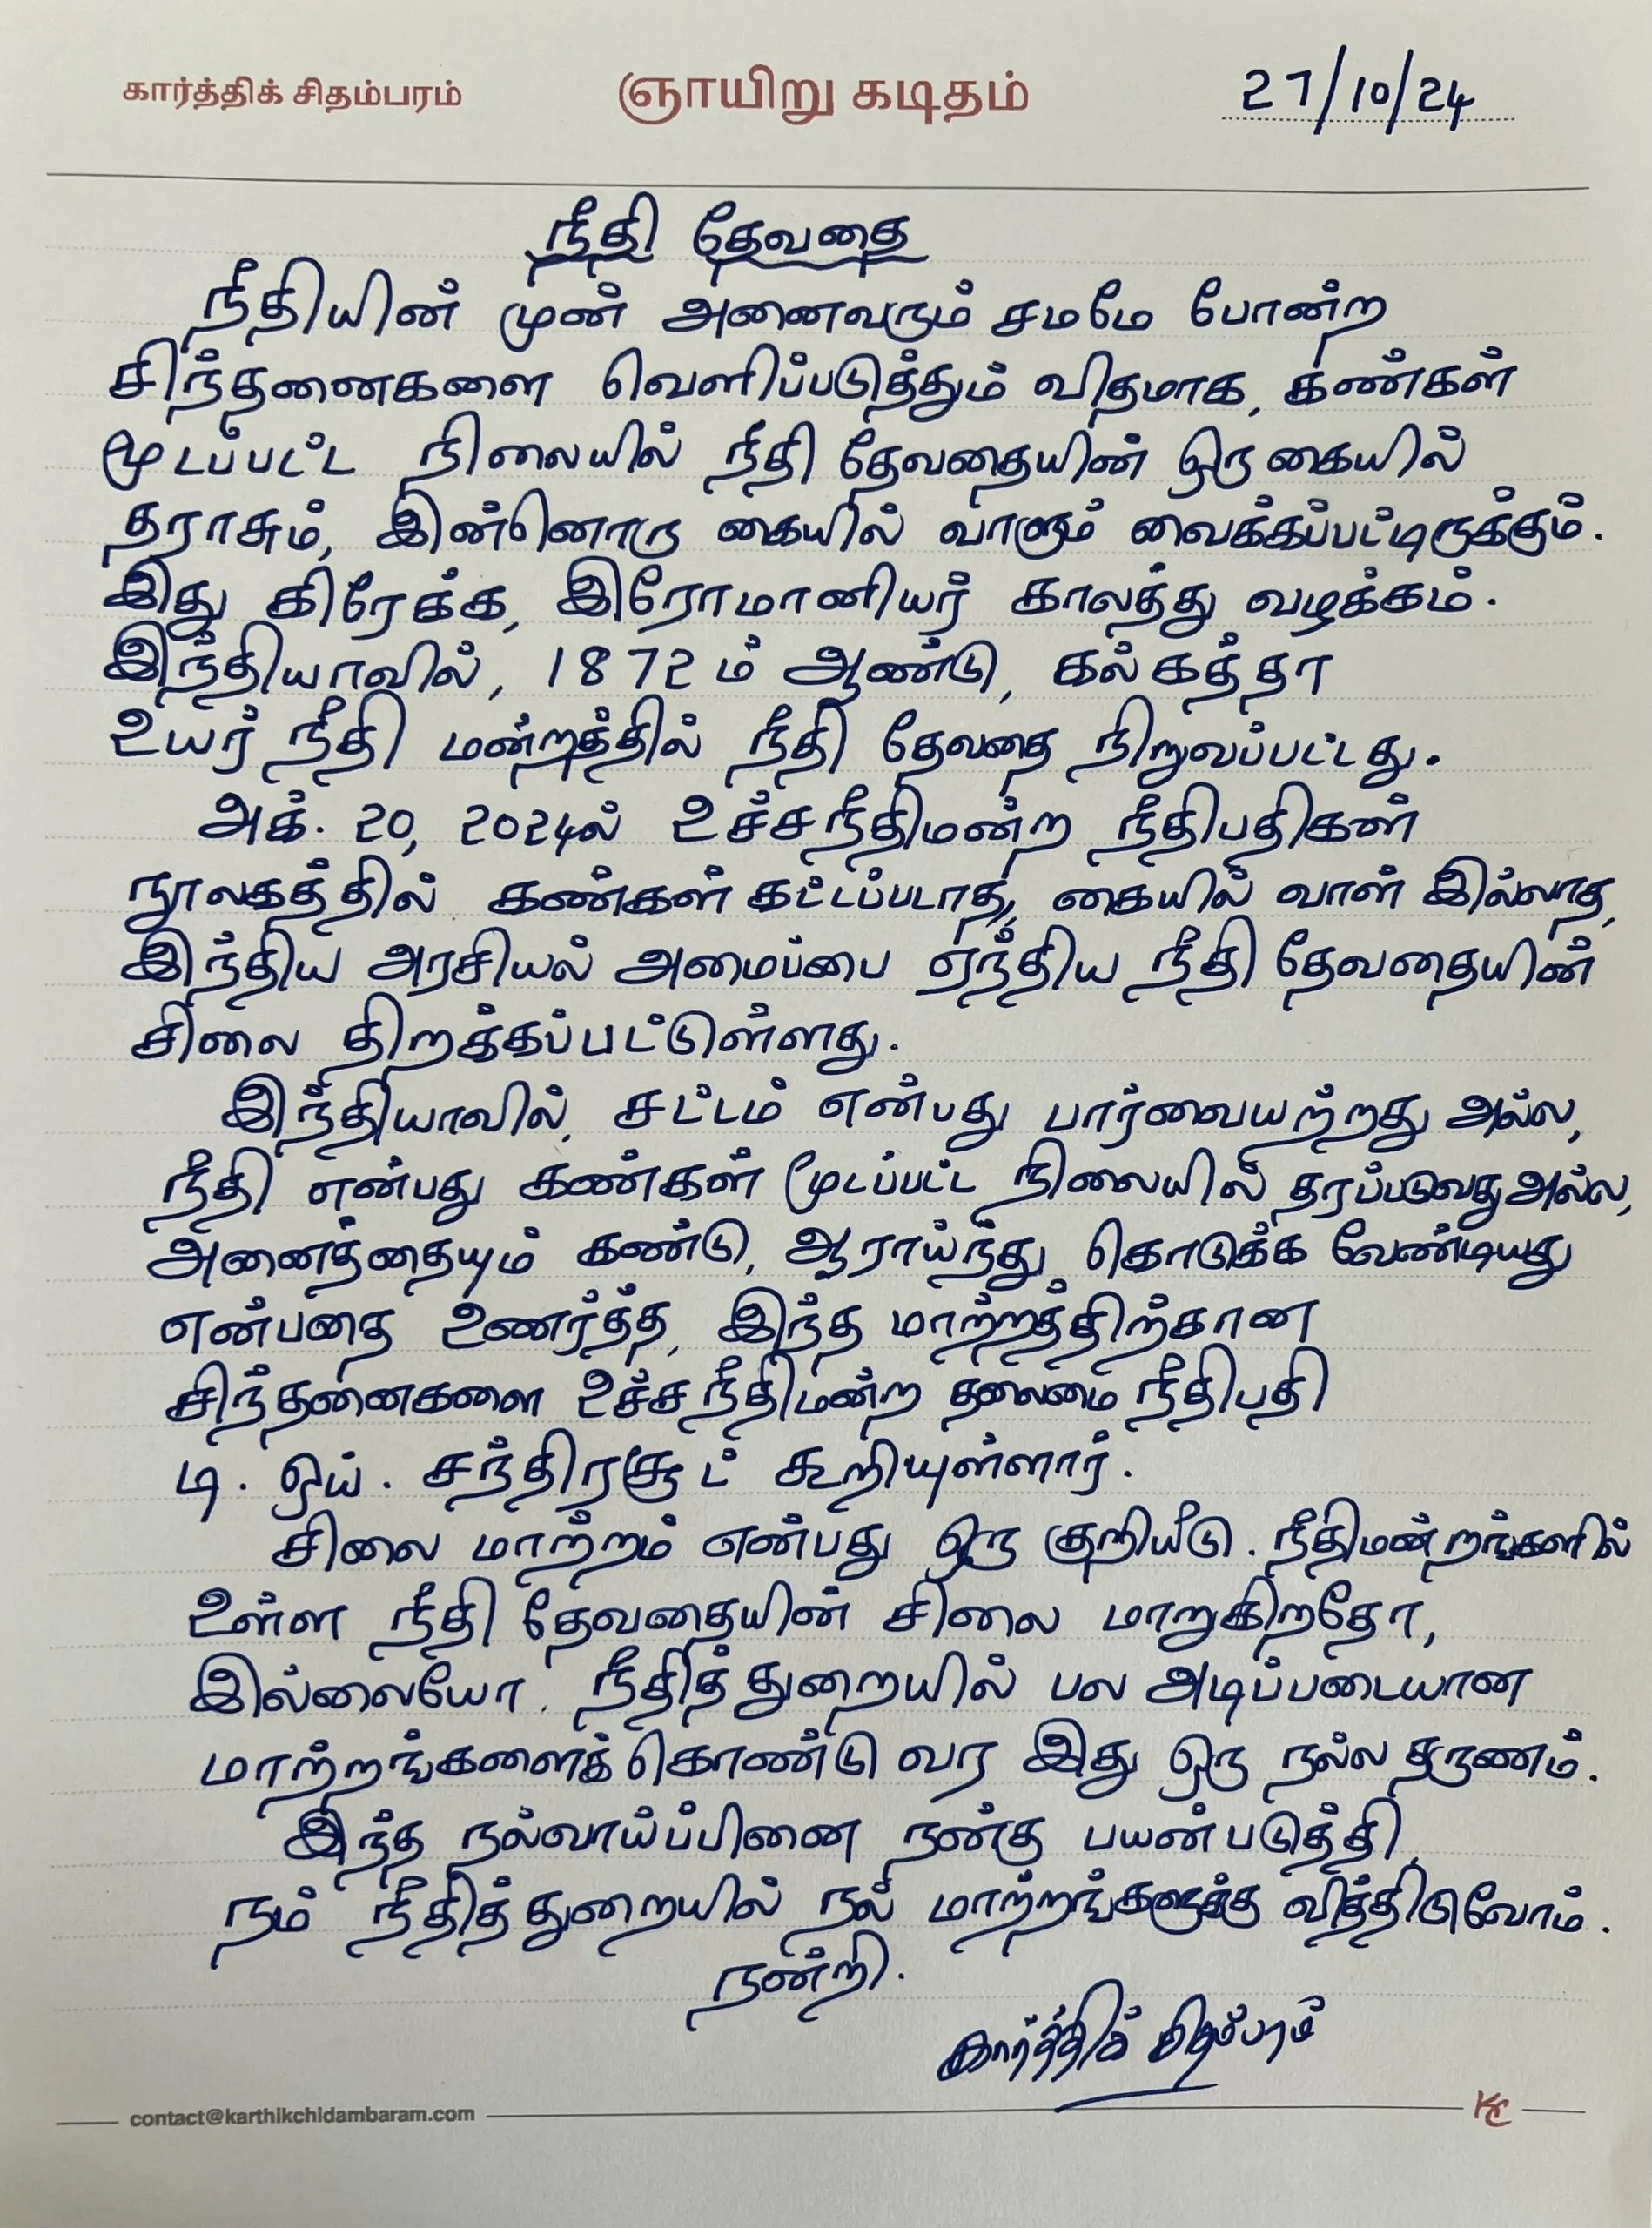 கார்த்திக் சிதம்பரம் ஞாயிறு கடிதம் 27/10/24
நீதி தேவதை
நீதியின் முன் அனைவரும் சமமே போன்ற
சிந்தனைகளை வெளிப்படுத்தும் விதமாக, கண்கள்
மூடப்பட்ட நிலையில் நீதி தேவதையின் ஒரு கையில்
தராசும், இன்னொரு கையில் வாளும் வைக்கப்பட்டிருக்கும்.
இது கிரேக்க, இரோமானியர் காலத்து வழக்கம்.
இந்தியாவில், 1872 ம் ஆண்டு, கல்கத்தா
உயர் நீதி மன்றத்தில் நீதி தேவதை நிறுவப்பட்டது.
அக். 20, 2024ல் உச்சநீதிமன்ற நீதிபதிகள்
நூலகத்தில் கண்கள் கட்டப்படாத, கையில் வாள் இல்லாத,
இந்திய அரசியல் அமைப்பை ஏந்திய நீதி தேவதையின்
சிலை திறக்கப்பட்டுள்ளது.
இந்தியாவில், சட்டம் என்பது பார்வையற்றது அல்ல,
நீதி என்பது கண்கள் மூடப்பட்ட நிலையில் தரப்படுவது அல்ல,
அனைத்தையும் கண்டு, ஆராய்ந்து கொடுக்க வேண்டியது
என்பதை உணர்த்த, இந்த மாற்றத்திற்கான
சிந்தனைகளை உச்ச நீதிமன்ற தலைமை நீதிபதி
டி. ஒய். சந்திரசூட் கூறியுள்ளார்.
சிலை மாற்றம் என்பது ஒரு குறியீடு. நீதிமன்றங்களில்
உள்ள நீதி தேவதையின் சிலை மாறுகிறதோ,
இல்லையோ, நீதித்துறையில் பல அடிப்படையான
மாற்றங்களைக் கொண்டு வர இது ஒரு நல்ல தருணம்.
இந்த நல்வாய்ப்பினை நன்கு பயன்படுத்தி,
நம் நீதித்துறையில் நல் மாற்றங்களுக்கு வித்திடுவோம்.
நன்றி.
கார்த்திக் சிதம்பரம்
contact@karthikchidambaram.com KC